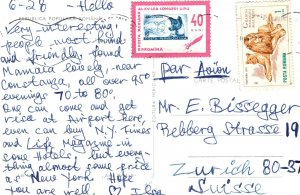 6-28 - Hello
Very interesting
people most kind
and friendly, found
Mamaia lovely, near
Constanza, all over 950
evenings 70 to 80.
One can come and get
rice at Airport here,
even can buy N.Y. Times
and Life Magazine in
some Hotels, but every-
thing almost same price
as New York. Hope
you are well.
40
POSTA ROMANA
Par Avion
Mr. E. Bissegger
Rebberg Strasse 19
Zurich 80-37
Suisse